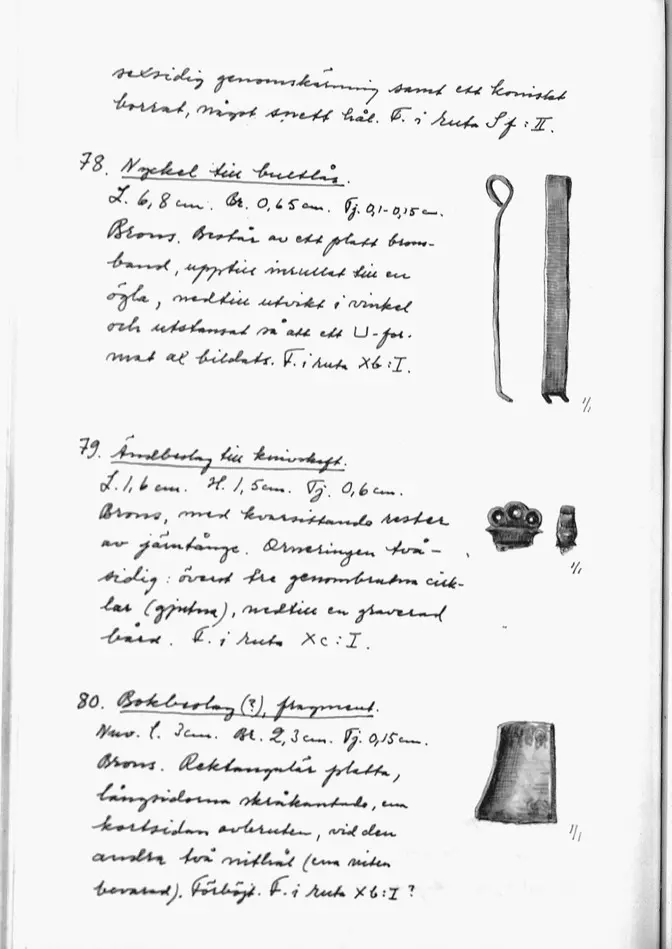 sexsidig genomskärning samt ett koniskt
borrat, något snett hål. F. i ruta S f : II.
78. Nyckel till bultlås.
L. 6,8 cm. Br. 0,65 cm. Tj. 0,1-0,15 cm.
Brons. Består av ett platt brons-
band, upptill inrullat till en
ögla, nedtill utvikt i vinkel
och utstansat så att ett U-for-
mat ax bildats. F. i ruta Xb : I.
1/1
79. Ändbeslag till knivskaft.
L. 1,6 cm. H. 1,5 cm. Tj. 0,6 cm.
Brons, med kvarsittande rester
av järntånge. Orneringen två-
sidig : överst tre genombrutna cirk-
lar (gjutna), nedtill en graverad
bård. F. i ruta Xc : I.
1/1
80. Bokbeslag (?), fragment.
Nuv. l. 3 cm. Br. 2,3 cm. Tj. 0,15 cm.
Brons. Rektangulär platta,
långsidorna skråkantade, ena
kortsidan avbruten, vid den
andra två nithål (ena niten
bevarad). Förböjt. F. i ruta Xb : I ?
1/1